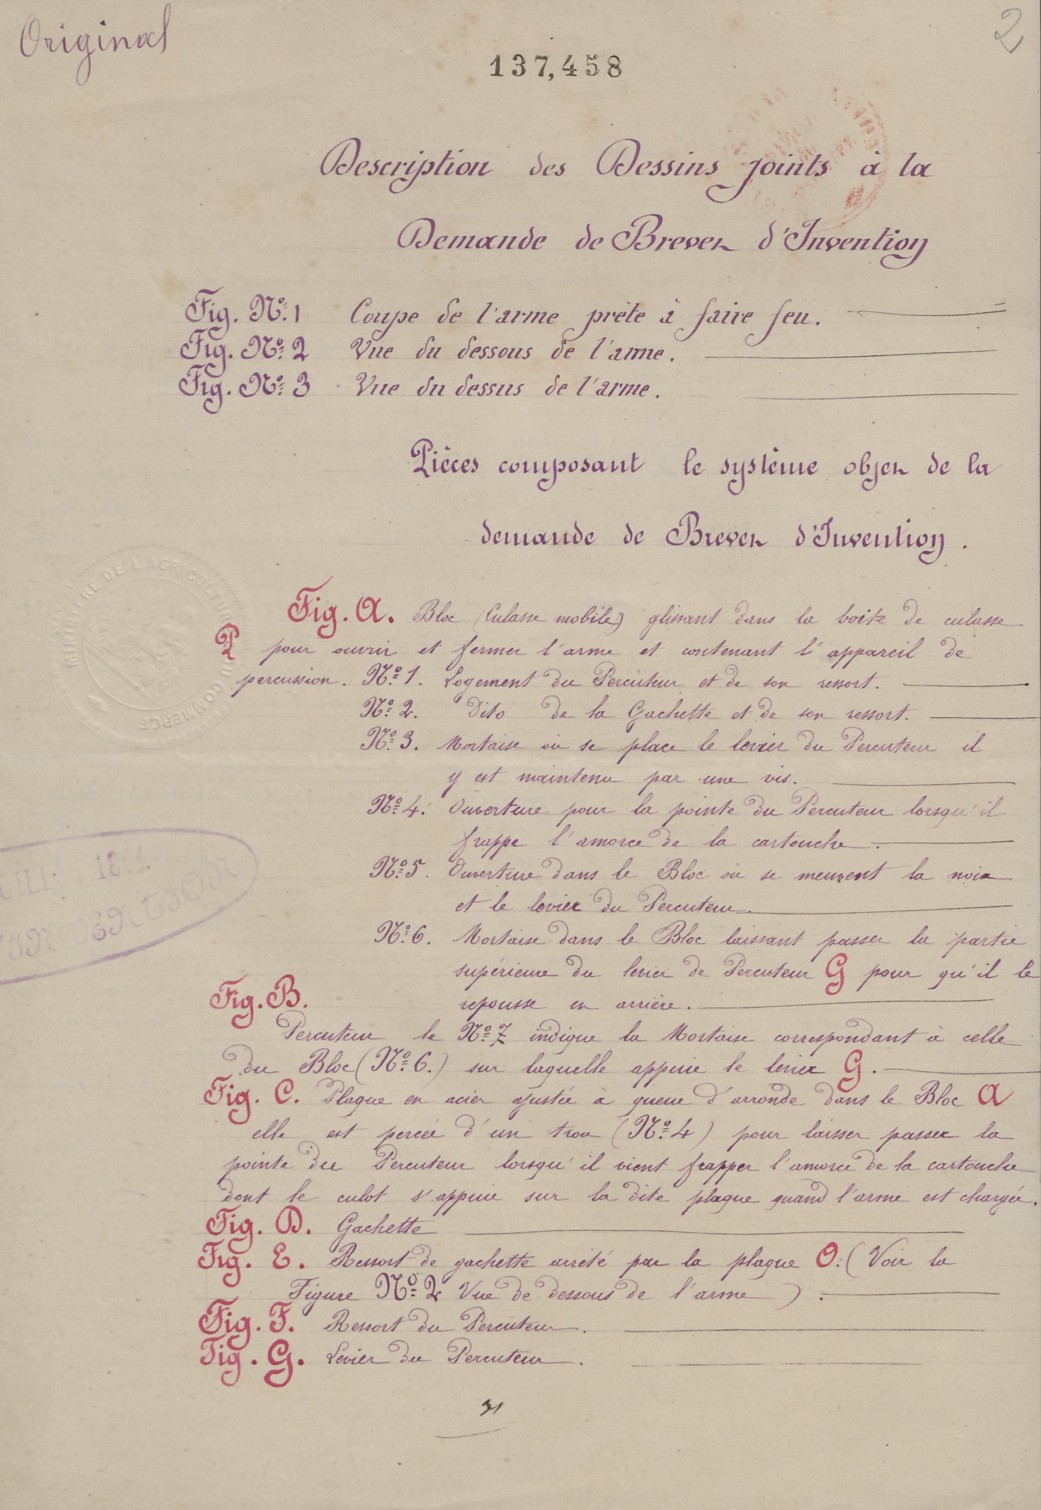 Original
2
137,458
Description des Dessins joints à la
Demande de Brevet d'Invention
Fig. Nº 1 Coupe de l'arme prête à faire feu.
Fig. Nº 2 Vue du dessous de l'arme.
Fig. Nº 3 Vue du dessus de l'arme.
Pièces composant le système objet de la
demande de Brevet d'Invention.
Fig. A. Bloc (Culasse mobile) glissant dans la boite de culasse
pour ouvrir et fermer l'arme et contenant l'appareil de
percussion. Nº 1. Logement du Percuteur et de son ressort.
Nº 2. Dito de la Gachette et de son ressort.
Nº 3. Mortaise où se place le levier du Percuteur il
y est maintenu par une vis.
Nº 4. Ouverture pour la pointe du Percuteur lorsqu'il
frappe l'amorce de la cartouche.
Nº 5. Ouverture dans le Bloc où se meuvent la noix
et le levier du Percuteur.
Nº 6. Mortaise dans le Bloc laissant passer la partie
supérieure du levier de Percuteur G pour qu'il le
repousse en arrière.
Fig. B.
Percuteur le Nº 7 indique la Mortaise correspondant à celle
du Bloc (Nº 6.) sur laquelle appuie le levier G.
Fig. C. Plaque en acier ajustée à queue d'arronde dans le Bloc A
elle est percée d'un trou (Nº 4) pour laisser passer la
pointe du Percuteur lorsqu'il vient frapper l'amorce de la cartouche
dont le culot s'appuie sur la dite plaque quand l'arme est chargée.
Fig. D. Gachette
Fig. E. Ressort de gachette arrêté par la plaque O. (Voir la
Figure Nº 2 Vue de dessous de l'arme).
Fig. F. Ressort du Percuteur.
Fig. G. Levier du Percuteur.